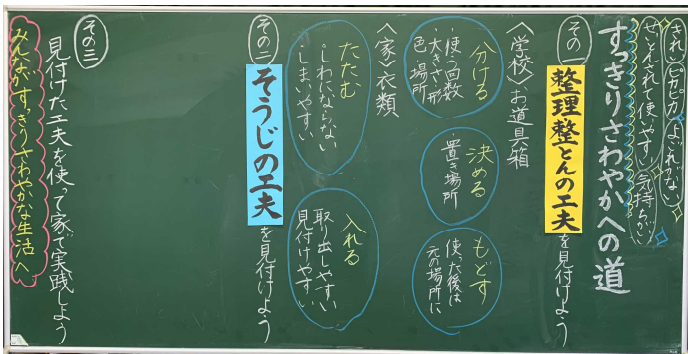 きれい ピカピカ よごれがない
せいとんされて使いやすい 気持ちがいい
すっきりさわやかへの道
その一 整理整とんの工夫を見付けよう
〈学校〉お道具箱
分ける
・使う回数
・大きさ・形
色 場所
決める
・置き場所
もどす
使った後は
元の場所に
〈家〉衣類
たたむ
・しわにならない
・しまいやすい
入れる
取り出しやすい
見付けやすい
その二 そうじの工夫を見付けよう
その三
見付けた工夫を使って家で実践しよう
みんながすっきりさわやかな生活へ